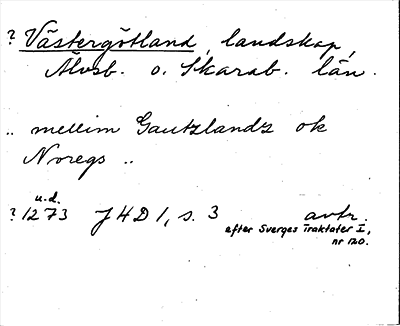 ? Västergötland, landskap,
Älvsb. o. Skarab. län.
.. mellim Gautzlandz ok
Noregs ..
u.d.
? 1273 J4D1, s. 3 avtr.
efter Sverges Traktater I,
nr 120.